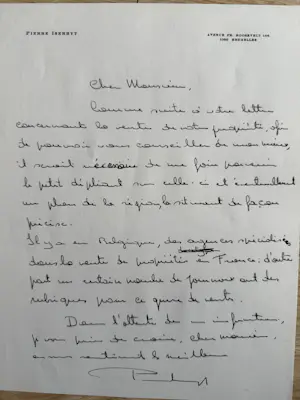 PIERRE ISERBYT
AVENUE FR. ROOSEVELT 188
1050 BRUXELLES
Cher Monsieur,
Comme suite à votre lettre
concernant la vente de votre propriété, afin
de pouvoir vous conseiller de mon mieux,
il serait nécessaire de me faire parvenir
le petit dépliant sur celle-ci et éventuellement
un plan de la région, la situant de façon
précise.
Il y a en Belgique, des agences spécialisées
dans la vente de propriétés en France; d'autre
part un certain nombre de journaux ont des
rubriques pour ce genre de vente.
Dans l'attente de
je vous prie de croire, cher Monsieur,